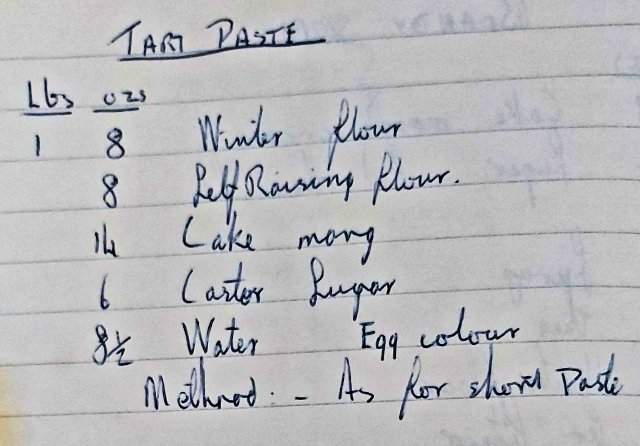 TART PASTE
Lbs ozs
1 8 Winter flour
8 Self Raising flour.
14 Cake marg
6 Castor Sugar
8½ Water Egg colour
Method :- As for short Paste